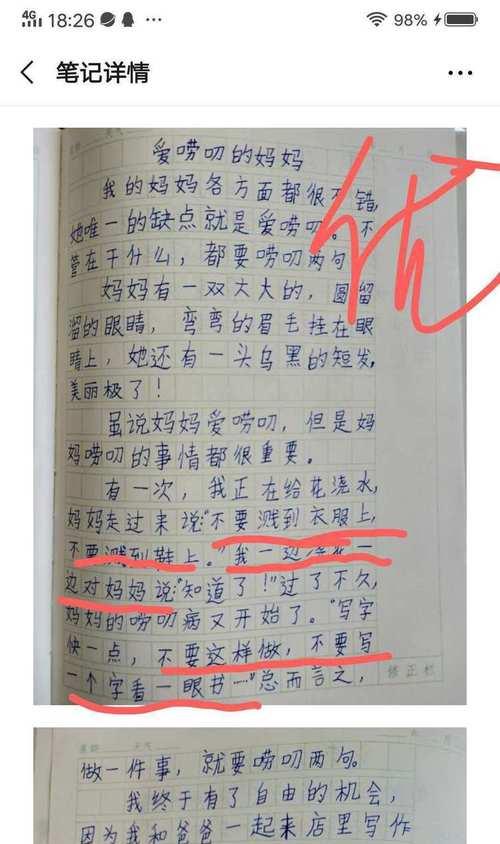 4G 18:26 98%
笔记详情
爱唠叨的妈妈
我的妈妈各方面都很不错,
她唯一的缺点就是爱唠叨。不
管在干什么，都要唠叨两句
妈妈有一双大大的，圆留
溜的眼睛，弯弯的眉毛挂在眼
睛上，她还有一头乌黑的短发,
美丽极了！
虽说妈妈爱唠叨，但是妈
妈唠叨的事情都很重要。
有一次，我正在给花浇水,
妈妈走过来说:“不要溅到衣服上,
不要溅到鞋上。”我一边浇花一
边对妈妈说:“知道了!”过了不久,
妈妈的唠叨病又开始了。“写字
快一点，不要这样做，不要写
一个字看一眼书……”总而言之，
修正栏
做一件事，就要唠叨两句。
我终于有了自由的机会，
因为我和爸爸一起来店里写作
优